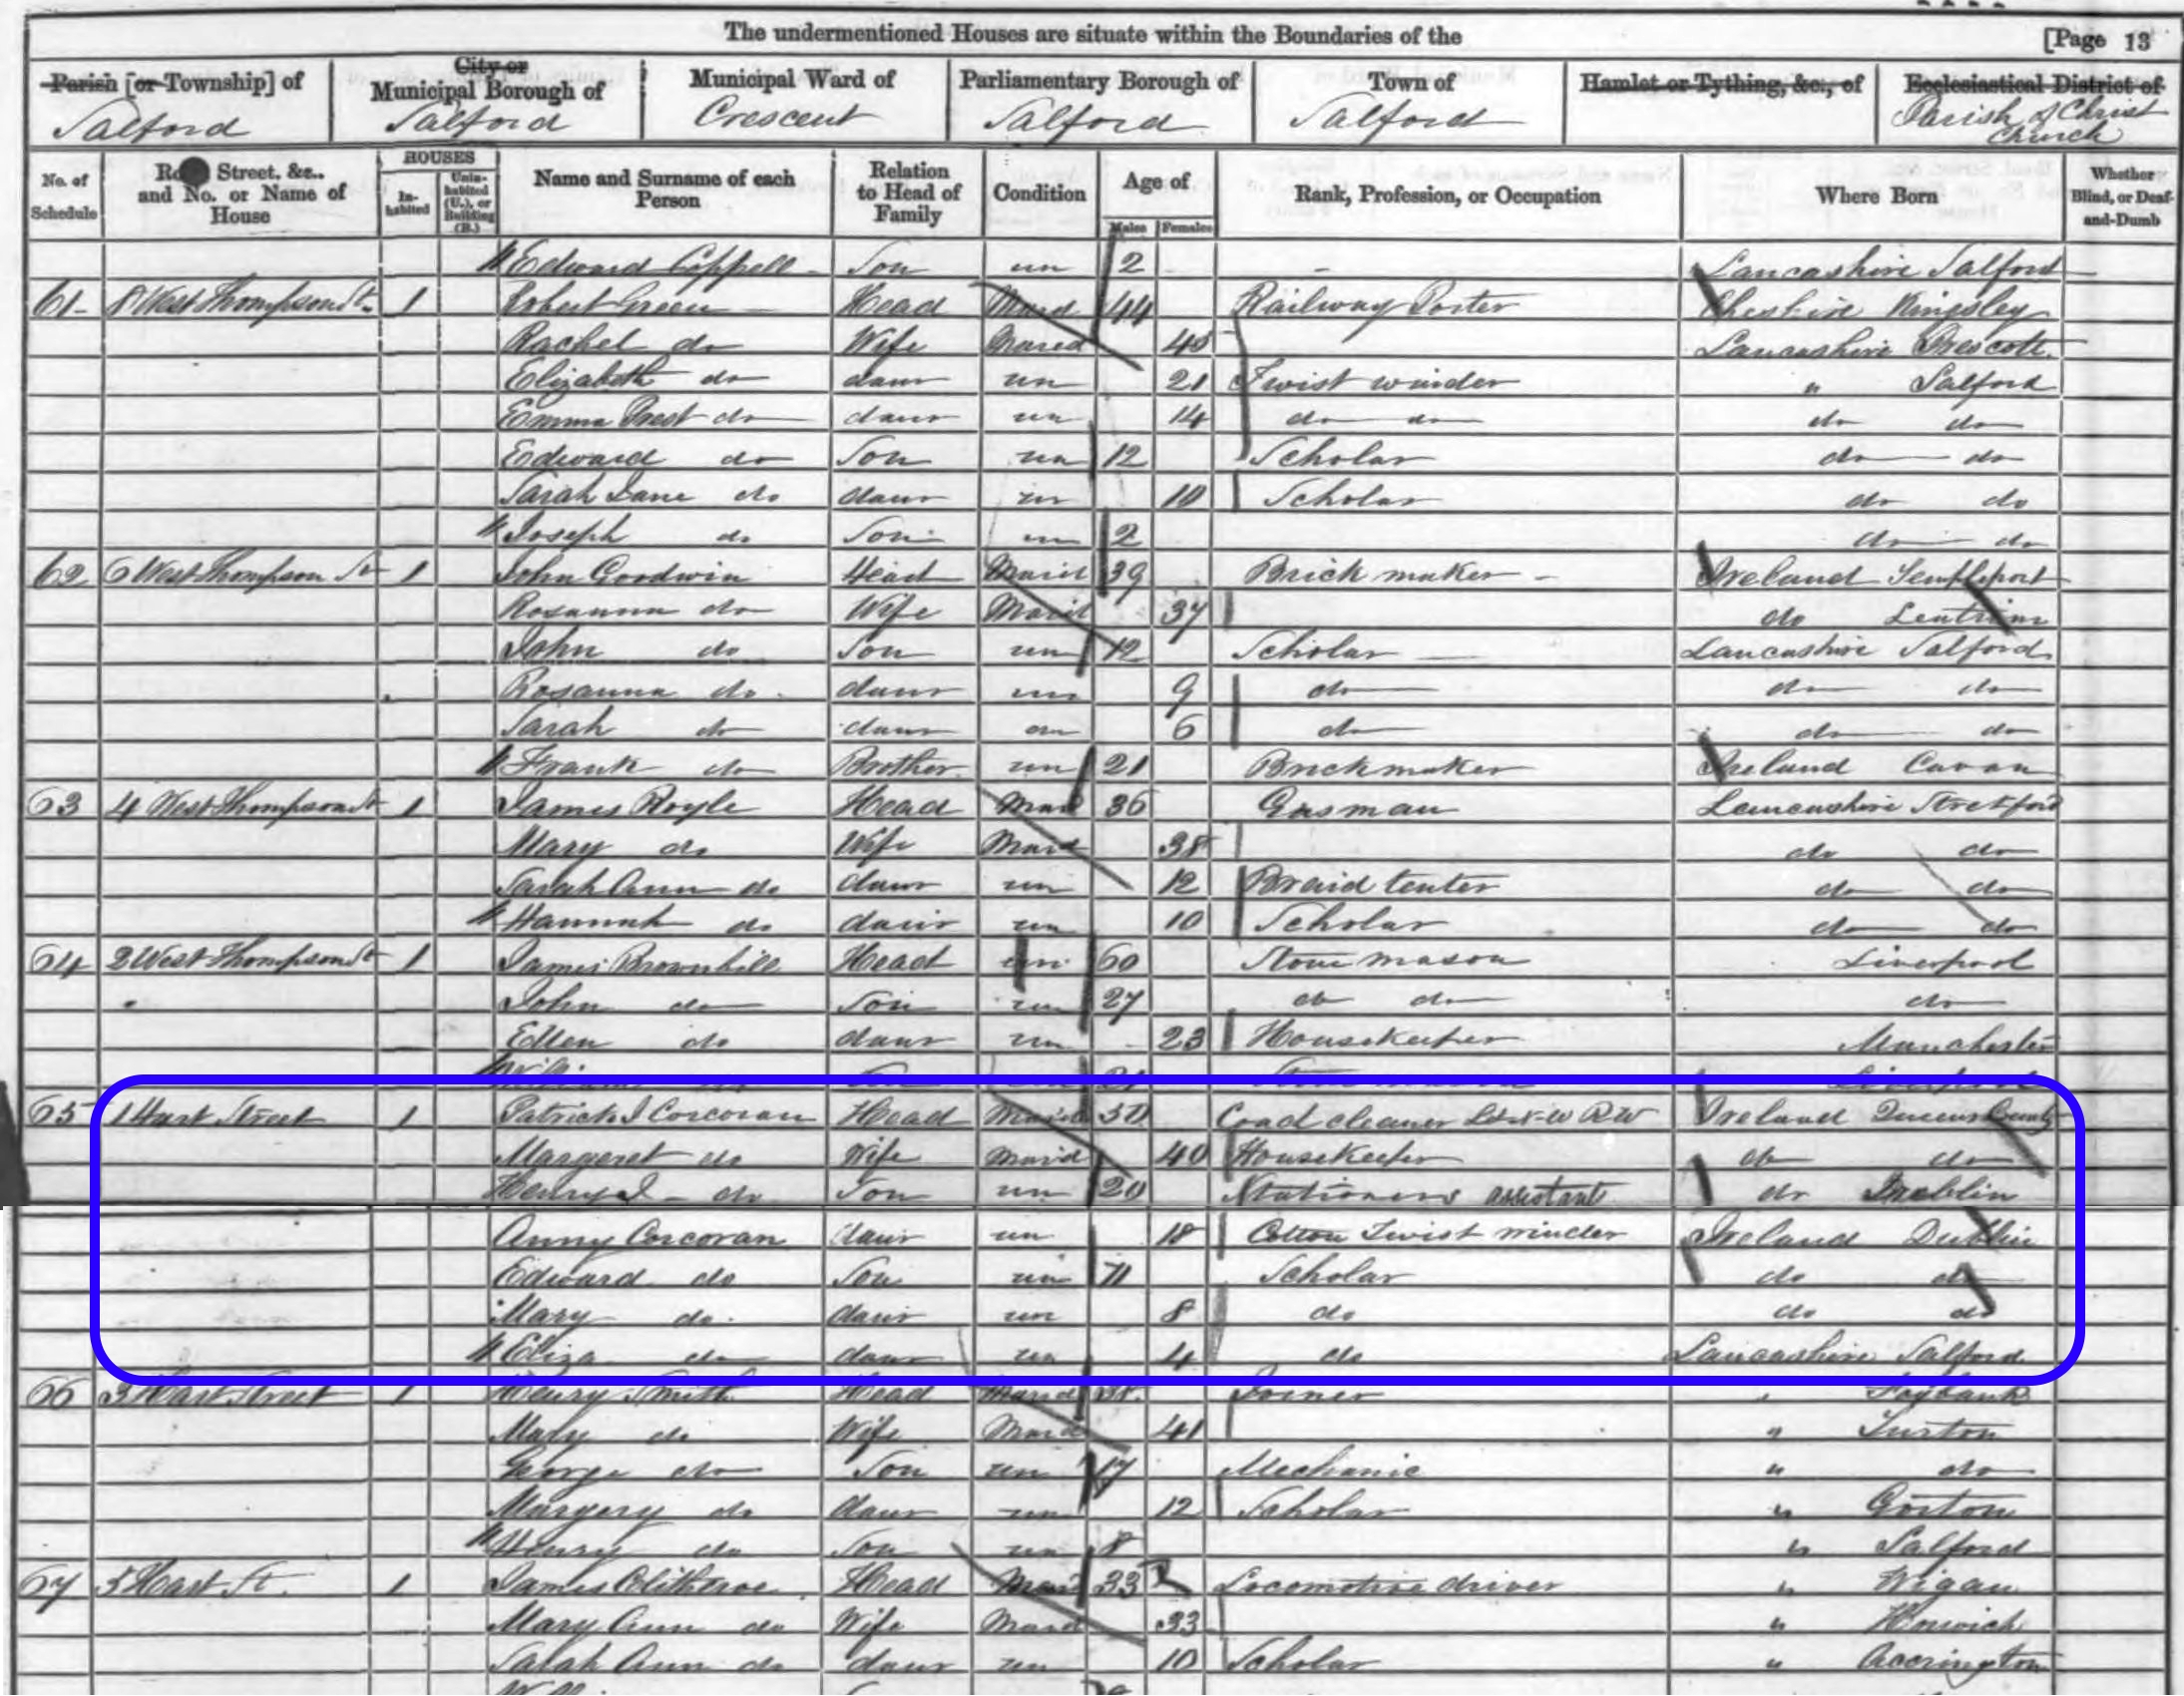 The undermentioned Houses are situate within the Boundaries of the [Page 13
Parish [or Township] of City or Municipal Borough of Municipal Ward of Parliamentary Borough of Town of Hamlet or Tything, &c., of Ecclesiastical District of
Salford Salford Crescent Salford Salford Parish of Christ Church
No. of Schedule Street, &c., and No. or Name of House HOUSES Inhabited Uninhabited (U.), or Building (B.) Name and Surname of each Person Relation to Head of Family Condition Age of Males Females Rank, Profession, or Occupation Where Born Whether Blind, or Deaf-and-Dumb
Edward Coppell Son un 2 Lancashire Salford
61 8 West Thompson St 1 Robert Green Head Mard 44 Railway Porter Cheshire Kingsley
Rachel do Wife Mared 45 Lancashire Prescott
Elizabeth do daur un 21 Twist winder " Salford
Emma do daur un 14 do do do do
Edward do Son un 12 Scholar do do
Sarah Jane do daur un 10 Scholar do do
Joseph do Son un 2 do do
62 6 West Thompson St 1 John Goodwin Head Marid 39 Brick maker Ireland Templeport
Rosanna do Wife Marid 37 do Leutrim
John do Son un 12 Scholar Lancashire Salford
Rosanna do daur un 9 do do do
Sarah do daur un 6 do do do
Frank do Brother un 21 Brickmaker Ireland Cavan
63 4 West Thompson St 1 James Royle Head Mard 36 Gasman Lancashire Stretford
Mary do Wife Mard 38 do do
Sarah Ann do daur un 12 Braid tenter do do
Hannah do daur un 10 Scholar do do
64 2 West Thompson St 1 James Brownhill Head un 60 Stone mason Liverpool
John do Son un 27 do do do
Ellen do daur un 23 Housekeeper Manchester
William do Son un 21 Stone mason Liverpool
65 1 Hart Street 1 Patrick J Corcoran Head Marid Coach cleaner L & N-W RW Ireland Queens County
Margaret do Wife Marid 40 Housekeeper do do
Henry J do Son un 20 Stationers assistant do Dublin
Anny Corcoran daur un 18 Cotton Twist winder Ireland Dublin
Edward do Son un 11 Scholar do do
Mary do daur un 8 do do do
Eliza do daur un 4 do Lancashire Salford
66 3 Hart Street 1 Henry Smith Head Marid 38 Joiner "
Mary do Wife Mard 41 " Turton
George do Son un 17 Mechanic " do
Margery do daur un 12 Scholar " Gorton
Henry do Son un 8 " Salford
67 5 Hart St. 1 James Clitheroe Head Mard 33 Locomotive driver " Wigan
Mary Ann do Wife Mard 33 " Horwich
Sarah Ann do daur un 10 Scholar " Accrington